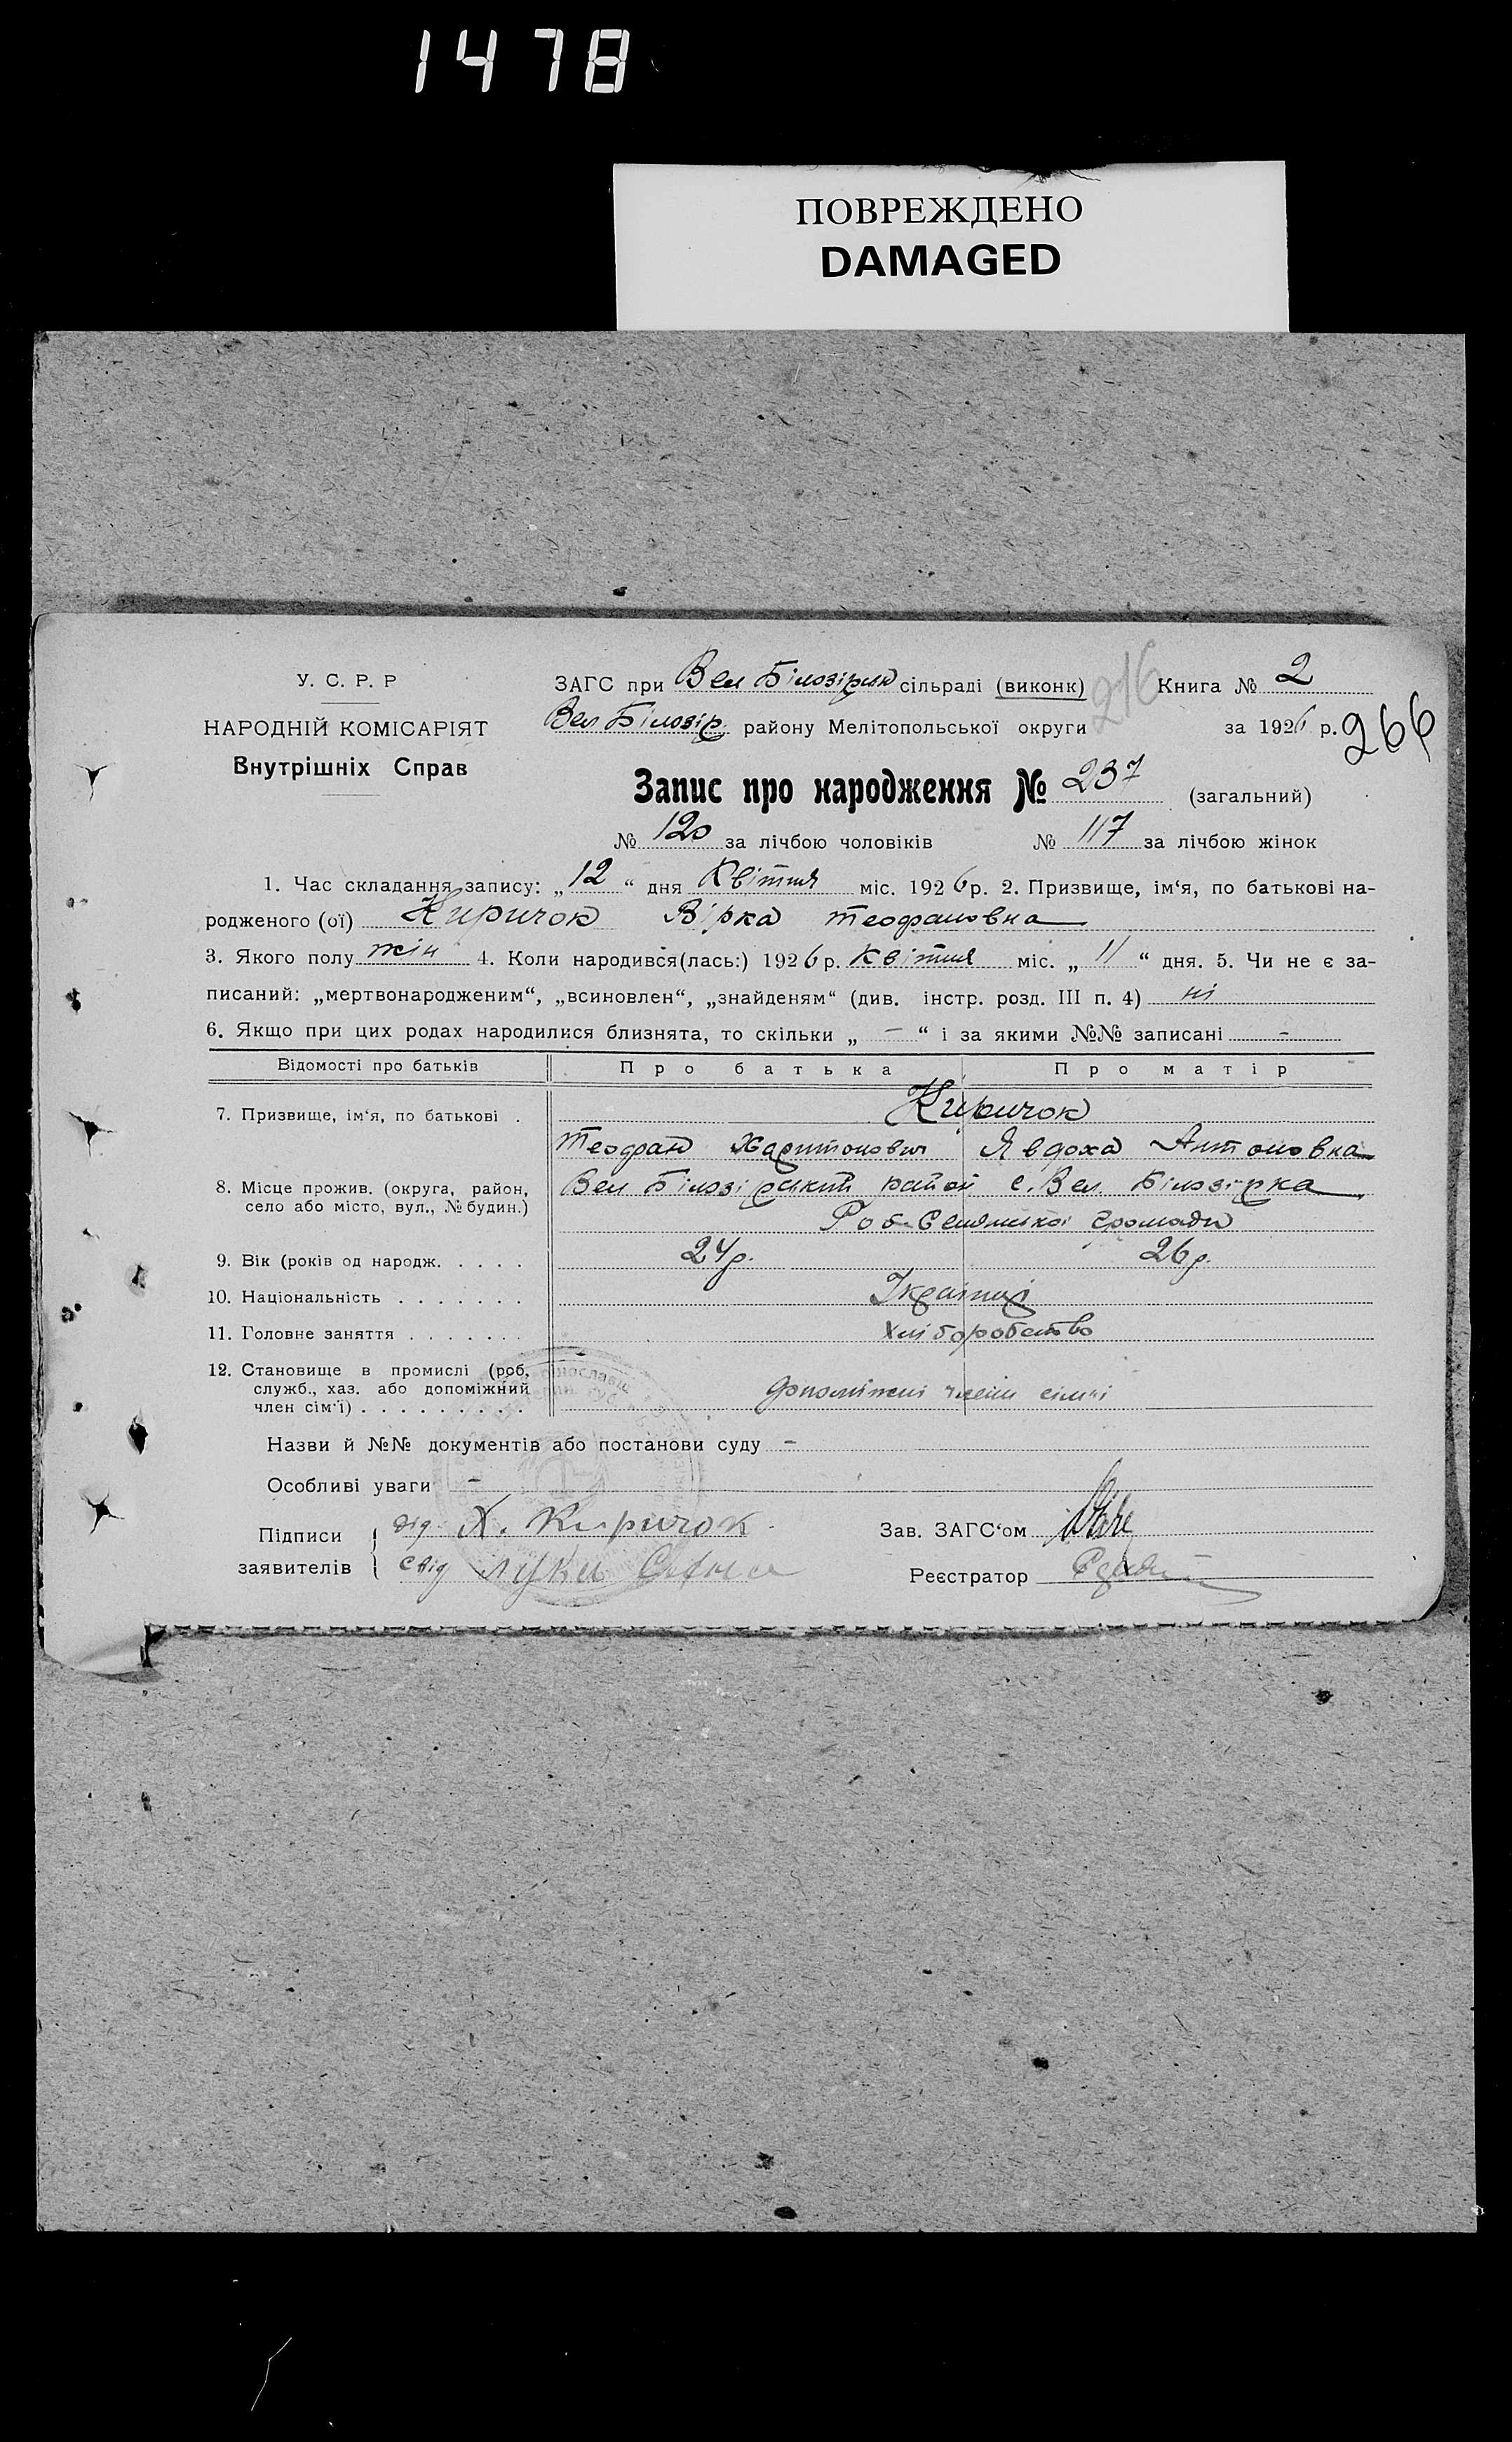 1478
ПОВРЕЖДЕНО
DAMAGED
У. С. Р. Р
НАРОДНІЙ КОМІСАРІЯТ
Внутрішніх Справ
ЗАГС при Вел Білозірск сільраді (виконк) 216 Книга № 2
Вел Білозір. району Мелітопольської округи за 1926 р. 266
Запис про народження № 237 (загальний)
№ 120 за лічбою чоловіків № 117 за лічбою жінок
1. Час складання запису: „12“ дня Квітня міс. 1926 р. 2. Призвище, ім‘я, по батькові на-
родженого (ої) Киричок Вірка Теофановна
3. Якого полу жін 4. Коли народився(лась:) 1926 р. Квітня міс. „11“ дня. 5. Чи не є за-
писаний: „мертвонародженим“, „всиновлен“, „знайденям“ (див. інстр. розд. III п. 4) ні
6. Якщо при цих родах народилися близнята, то скільки „ - “ і за якими №№ записані -
Відомості про батьків Про батька Про матір
7. Призвище, ім‘я, по батькові . Киричок
Теофан Харитонович Явдоха Антоновна
8. Місце прожив. (округа, район, село або місто, вул., № будин.) Вел Білозірський район с. Вел. Білозірка
Роб-Селянської громади
9. Вік (років од народж. . . . . 24 р. 26 р.
10. Національність . . . . . . . Українці
11. Головне заняття . . . . . . . Хліборобство
12. Становище в промислі (роб,
служб., хаз. або допоміжний
член сім‘ї) . . . . . . . . . допоміжні члени сімьі
Назви й №№ документів або постанови суду -
Особливі уваги -
Підписи заявителів дід Х. Киричок
свід Лука
Зав. ЗАГС‘ом
Реєстратор